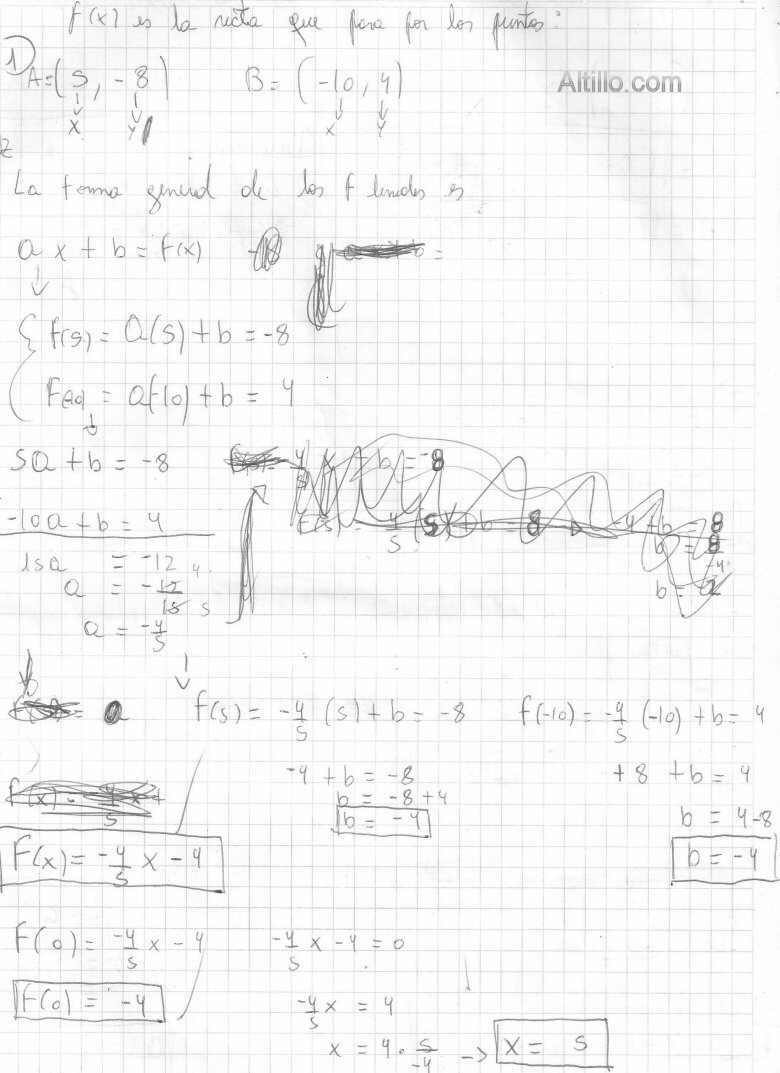 f(x) es la recta que pasa por los puntos:
1) A=(5, -8) B= (-10, 4)
x y x y
Altillo.com
La forma general de los f lineales es
a x + b = f(x)
{ f(5) = a(5) + b = -8
+ b = 4
5a + b = -8
-10a + b = 4
15a = -12
a = -12/15
a = -4/5
f(5) = -4/5 (5) + b = -8 f(-10) = -4/5 (-10) + b = 4
-4 + b = -8 +8 + b = 4
b = -8 + 4 b = 4-8
b = -4 b = -4
F(x) = -4/5 x - 4
F(0) = -4/5 x - 4 -4/5 x - 4 = 0
F(0) = -4 -4/5 x = 4
x = 4 . 5/-4 -> x = 5